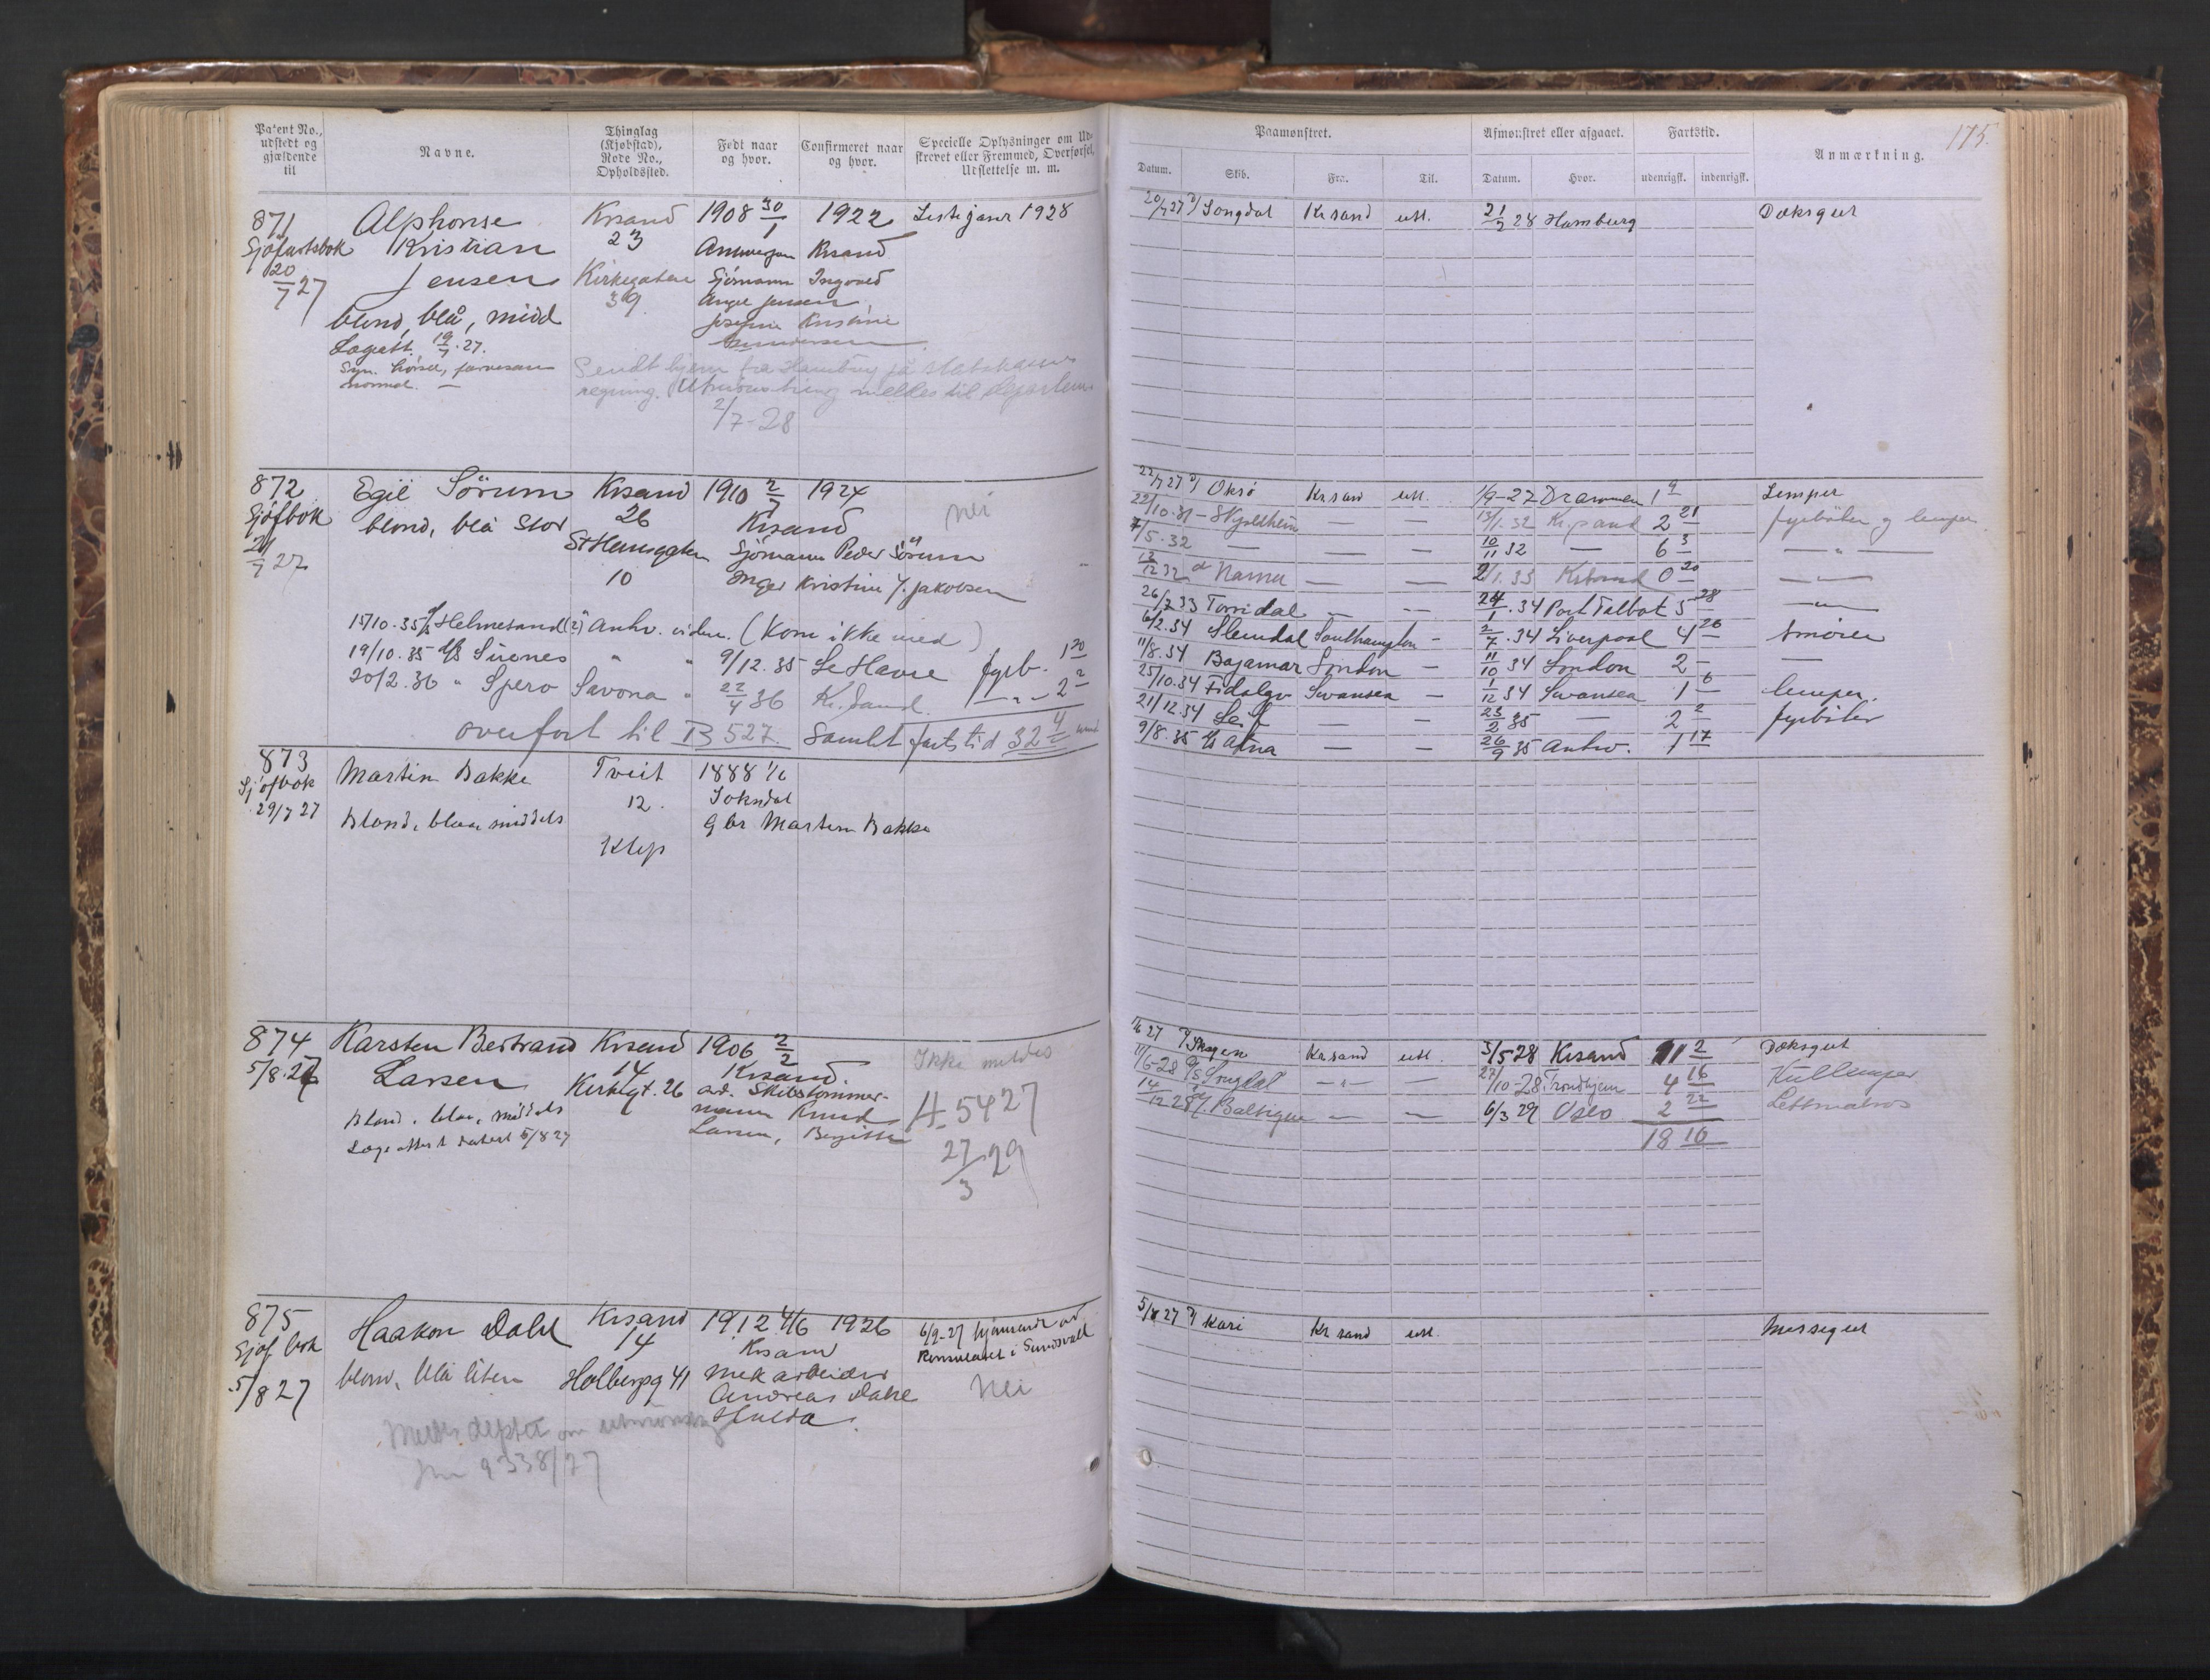 Patent No., udstedt og gjældende til
Navne.
Thinglag (Kjøbstad), Rode No., Opholdssted.
Født naar og hvor.
Confirmeret naar og hvor.
Specielle Oplysninger om Udskrevet eller Fremmed, Overførsel, Udslettelse m. m.
871 Alphonse Krsand 1908 30/1 1922 Listejanr 1928
Sjöfartsbok Kristian 23 Antwerpen Krsand
20/7 27 Jensen Kirkegaten Sjömann Ingvald
39 Aage Jensen
blond, blå, midd Josefine Kristine
Legeatt. 19/7.27. Gundersen
Syn. hörsel, farvesans
normal. —
Sendt hjem fra Hamburg på statskassens
regning. Utmönstring meldes til departem.
2/7-28
872 Egil Sörum Krsand 1910 2/7 1924
Sjöfbok blond, blå stor 26 Krsand nei
21/7 27 St Hansgaten Sjömann Peder Sörum
10 Inger Kristine f. Jakobsen
15/10.35 Helmesand (2) Antw. viden. (Kom ikke med)
19/10.35 Sirenes " " 9/12.35 Le Havre fyrb. 1 20
20/2.36 " Spero Savona " 22/4 36 Kr.sand. — " — 2 2
overfört til B 527. Samlet fartstid 32 4
873 Martin Bakke Tveit 1888 1/6
Sjöfbok 12. Sokndal
29/7 27 Blond, blaa middels Gbr Martin Bakke
Klep
874 Karsten Bertrand Krsand 1906 2/2 Ikke meldes
5/8.27 Larsen 14 Krsand.
Kirkegt. 26 ad. Skibstömmer-
Blond. blaa, middels mann Knud 5427
Legeattest datert 5/8 27 Larsen, Bergitte
27/3 29
875 Haakon Dahl Krsand 1912 4/6 1926 6/9-27 hjemsendt av
Sjöf bok 14 Krsand Konsulatet i Sundsvall
5/8 27 blond, blå liten Holbergg 41 Mek arbeider nei
Andreas Dahl
Hulda.
Meldt deptet om utmönstring
jnr 9338/27
175.
Paamønstret.
Afmønstret eller afgaaet.
Fartstid.
Anmærkning.
Datum. Skib. Fra. Til. Datum. Hvor. udenrigsk. indenrigsk.
20/7 27 Songdal Kr sand utl. 21/2 28 Hamburg Dæksgut
22/7 27 Oksö Kr sand utl. 1/9-27 Drammen 1 9 Lemper
22/10.31 — Skjoldheim — — 13/1.32 Kr.sand 2 21 fyrböter og lemper
7/5.32 — — — 10/11 32 — 6 3 — " —
12/12 32 Namu — — 2/1.33 Krsand 0 20 — " —
26/7 33 Torridal — — 24/1.34 Port Talbot 5 28 — " —
6/2.34 Slemdal Southampton — 2/7.34 Liverpool 4 26 Smörer
11/8.34 Bajamar London — 11/10 34 London 2 — —
25/10.34 Fidelgo Swansea — 1/12 34 Swansea 1 6 lemper.
21/12.34 Leif — — 23/2 35 — 2 2 fyrböter
9/8.35 Atna — — 26/9 35 Antw. 1 17
27 Skogen Kr sand utl. 3/5 28 Krsand 11 2 Dæksgut
11/6-28 Songdal — " — — 27/10-28 Trondhjem 4 16 Kullemper
14/12 28 Baltique — — 6/3 29 Oslo 2 22 Lettmatros
18 10
5/8 27 Kari Kr sand utl. Messegut